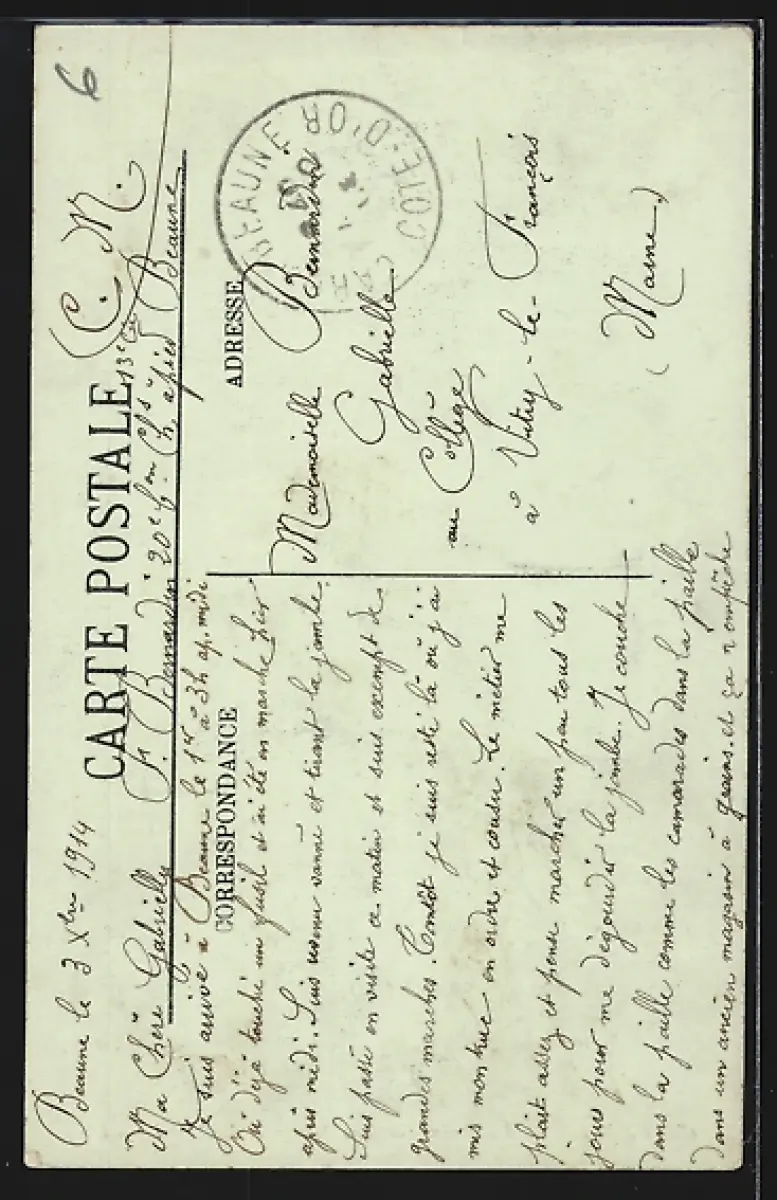 6
(C. M.
CARTE POSTALE
Beaune le 3 Xbre 1914
Bernardin 20e Bon Chs à pied Beaune
13e Cie
CORRESPONDANCE
Ma Chère Gabrielle
Je suis arrivé à Beaune le 1er à 3h ap. midi
Ai déjà touché un fusil et ai été en marche hier
après midi. Suis revenu vanné et tirant la jambe.
Suis passé en visite ce matin et suis exempt de
grandes marches. Tantôt je suis resté là où j'ai
mis mon truc en ordre et cousu. Le métier me
plait assez et pense marcher un peu tous les
jours pour me dégourdir la jambe. Je couche
dans la paille comme les camarades dans la paille
dans un ancien magasin à grains. et ça n'empêche
ADRESSE
BEAUNE CÔTE-D'OR
Mademoiselle Bernardin
Gabrielle
au Collège
à Vitry-le-François
(Marne)